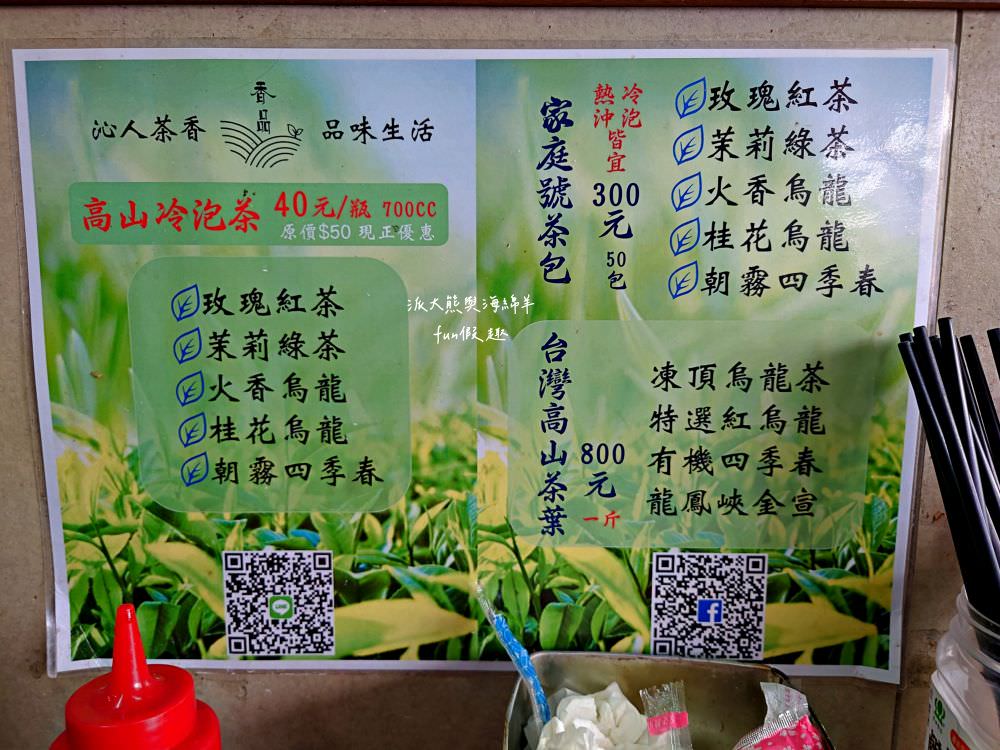 香品
沁人茶香 品味生活
高山冷泡茶 40元/瓶 700CC
原價$50 現正優惠
玫瑰紅茶
茉莉綠茶
火香烏龍
桂花烏龍
朝霧四季春
家庭號茶包
冷泡
熱沖
皆宜
300
元
50
包
玫瑰紅茶
茉莉綠茶
火香烏龍
桂花烏龍
朝霧四季春
台灣高山茶葉
800
元
一斤
凍頂烏龍茶
特選紅烏龍
有機四季春
龍鳳峽金宣
派大熊與海綿羊
fun假趣
LINE
f